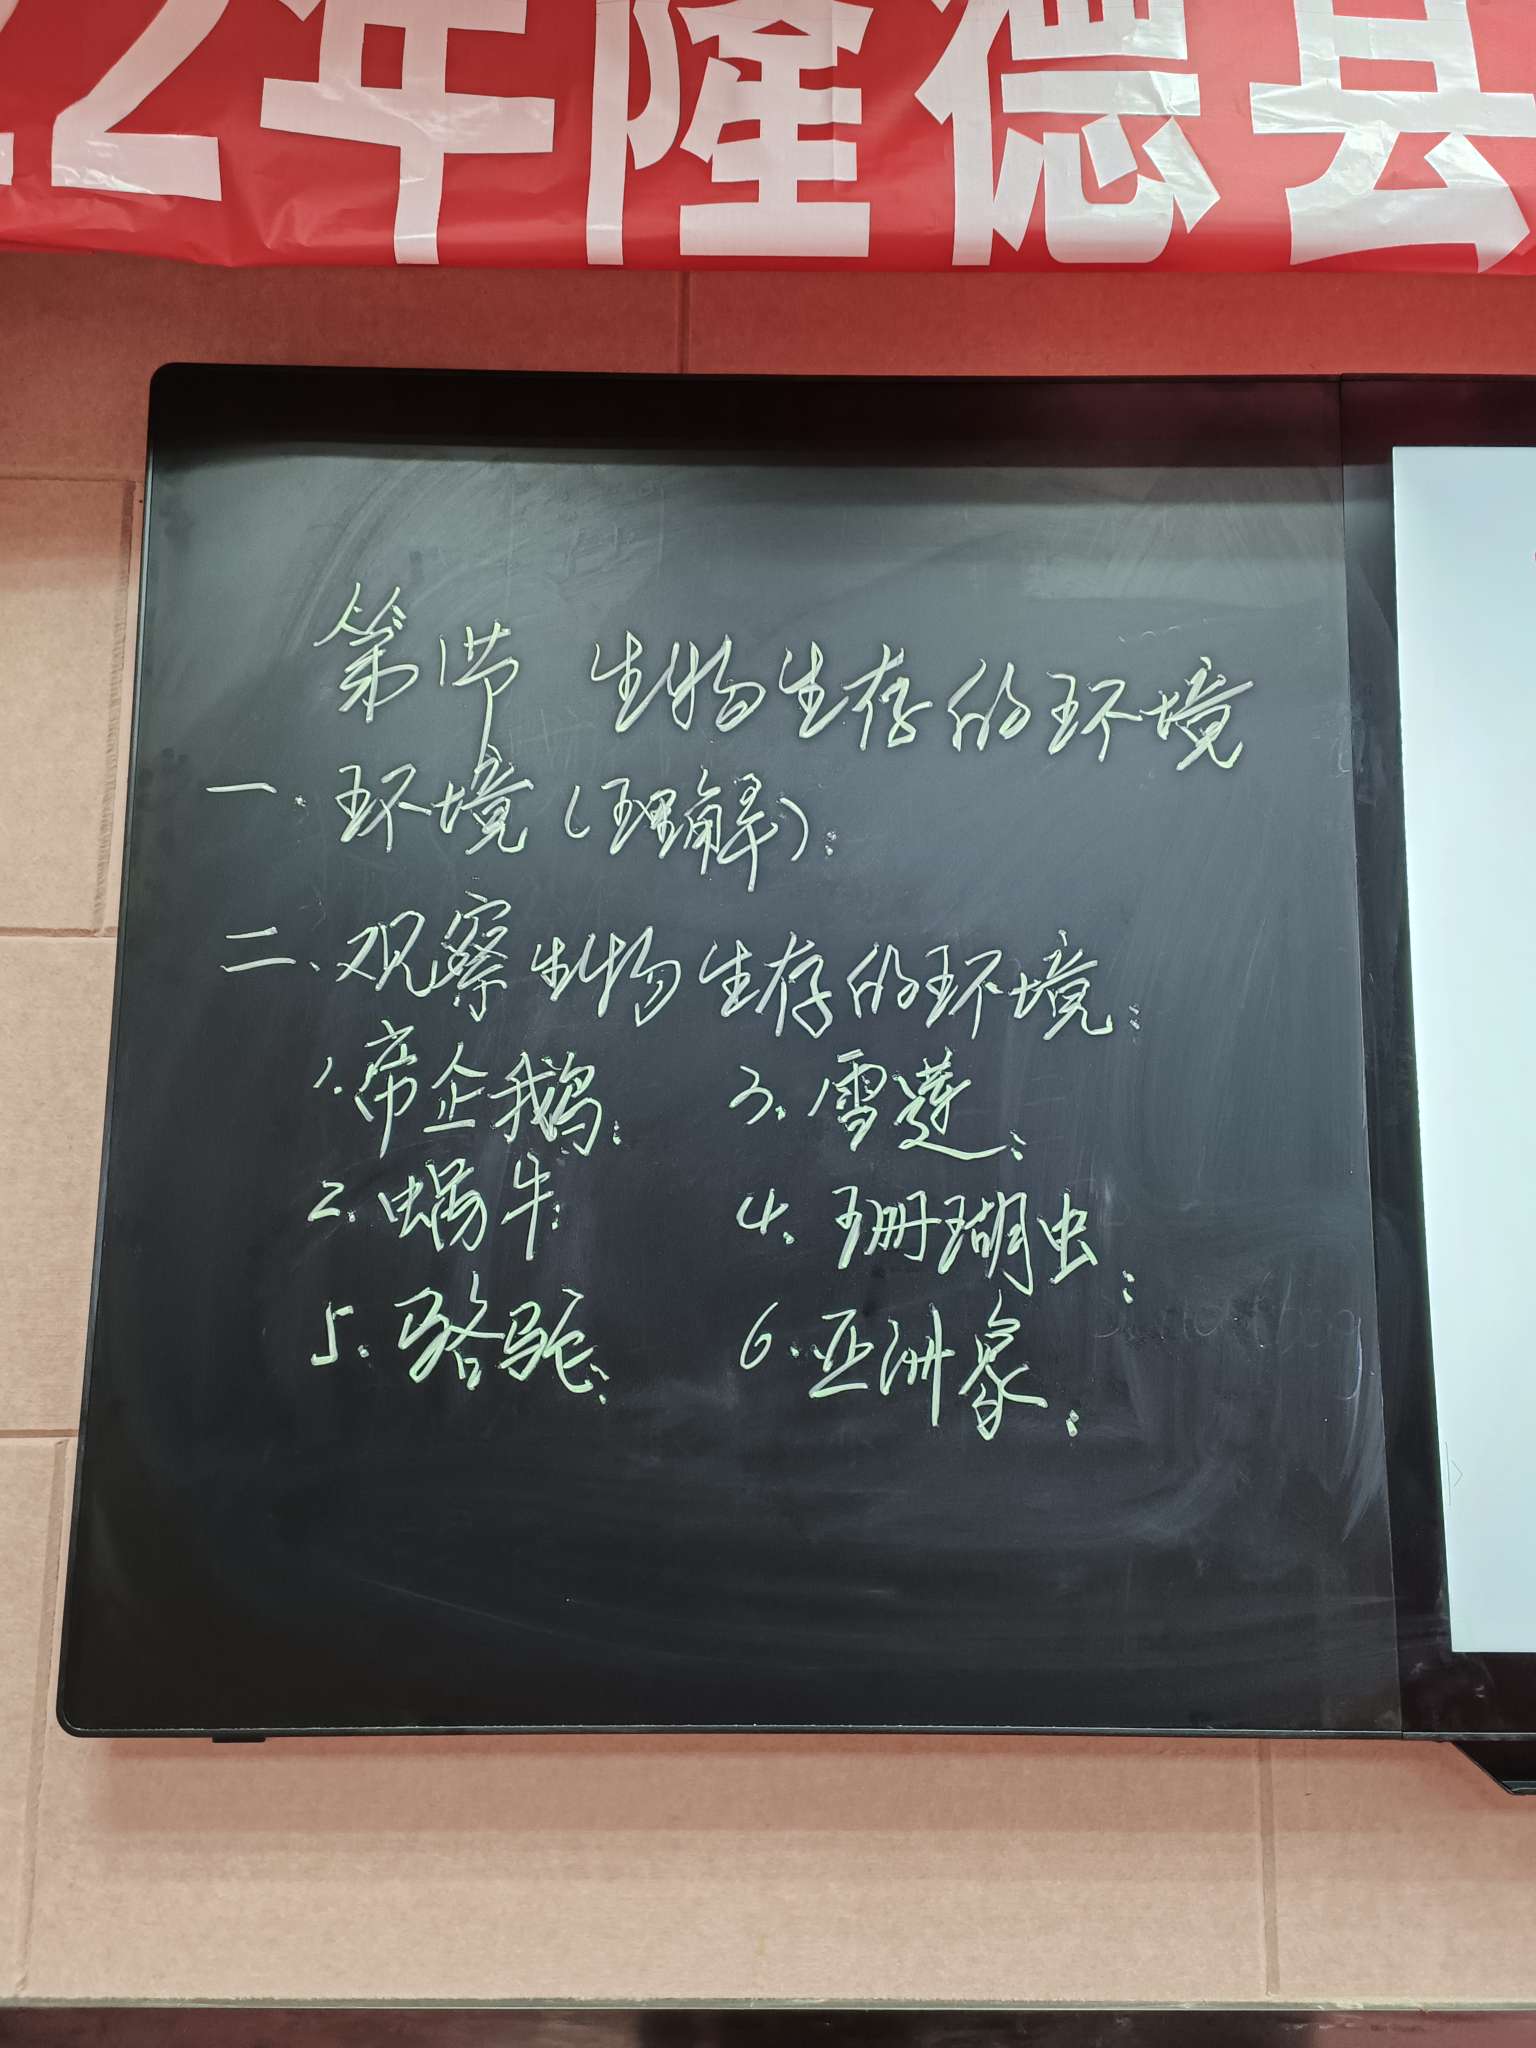 22年隆德县
第1节 生物生存的环境
一、环境(理解):
二、观察生物生存的环境:
1.帝企鹅: 3.雪莲:
2.蜗牛: 4.珊瑚虫:
5.骆驼: 6.亚洲象: